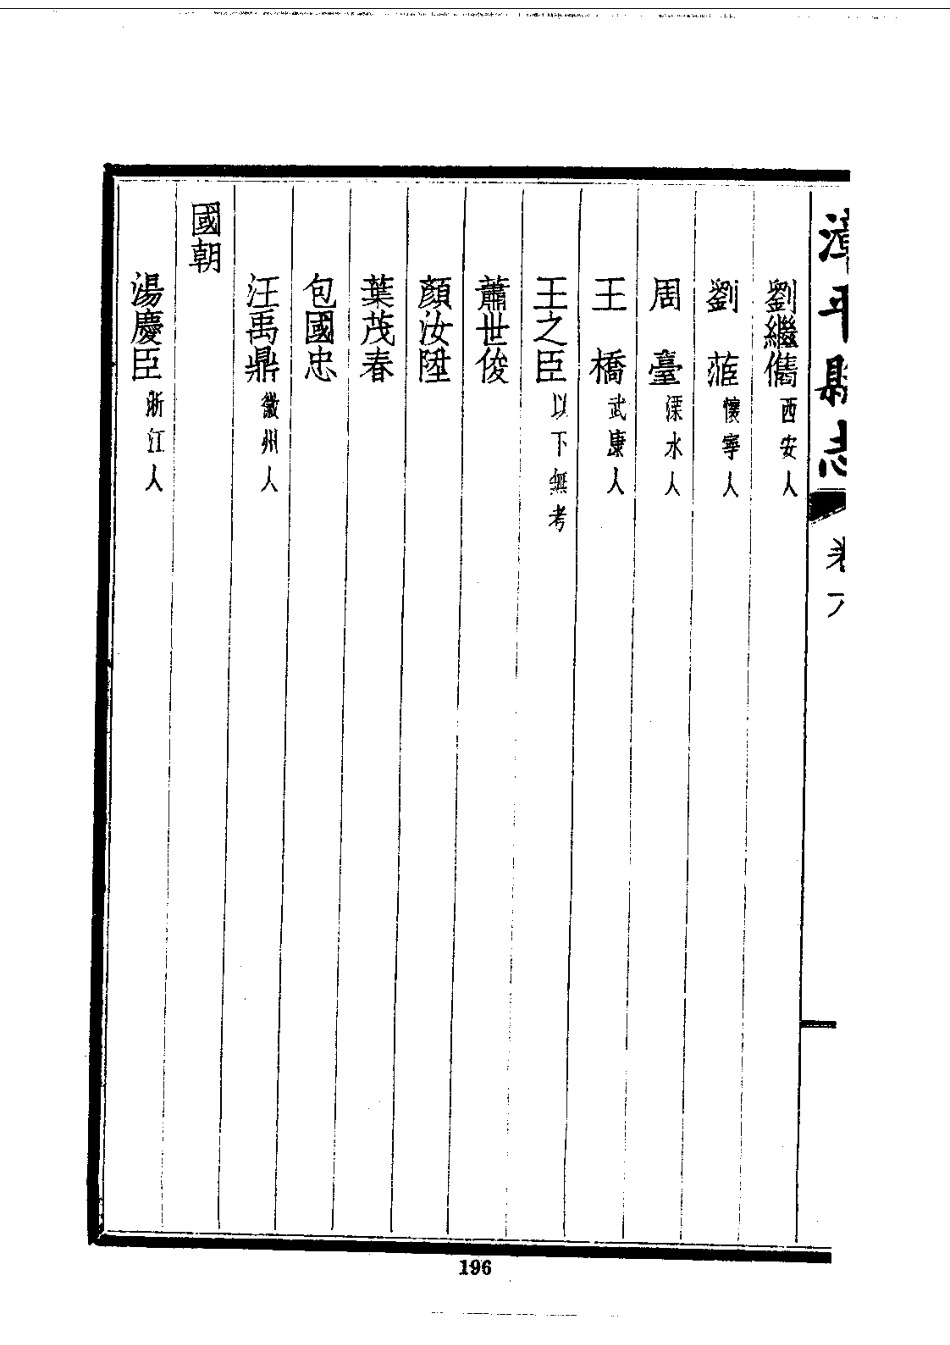 漳平縣志 卷六
劉繼儁 西安人
劉蓷 懷寧人
周臺 溧水人
王橋 武康人
王之臣 以下無考
蕭世俊
顏汝陞
葉茂春
包國忠
汪禹鼎 徽州人
國朝
湯慶臣 浙江人
196